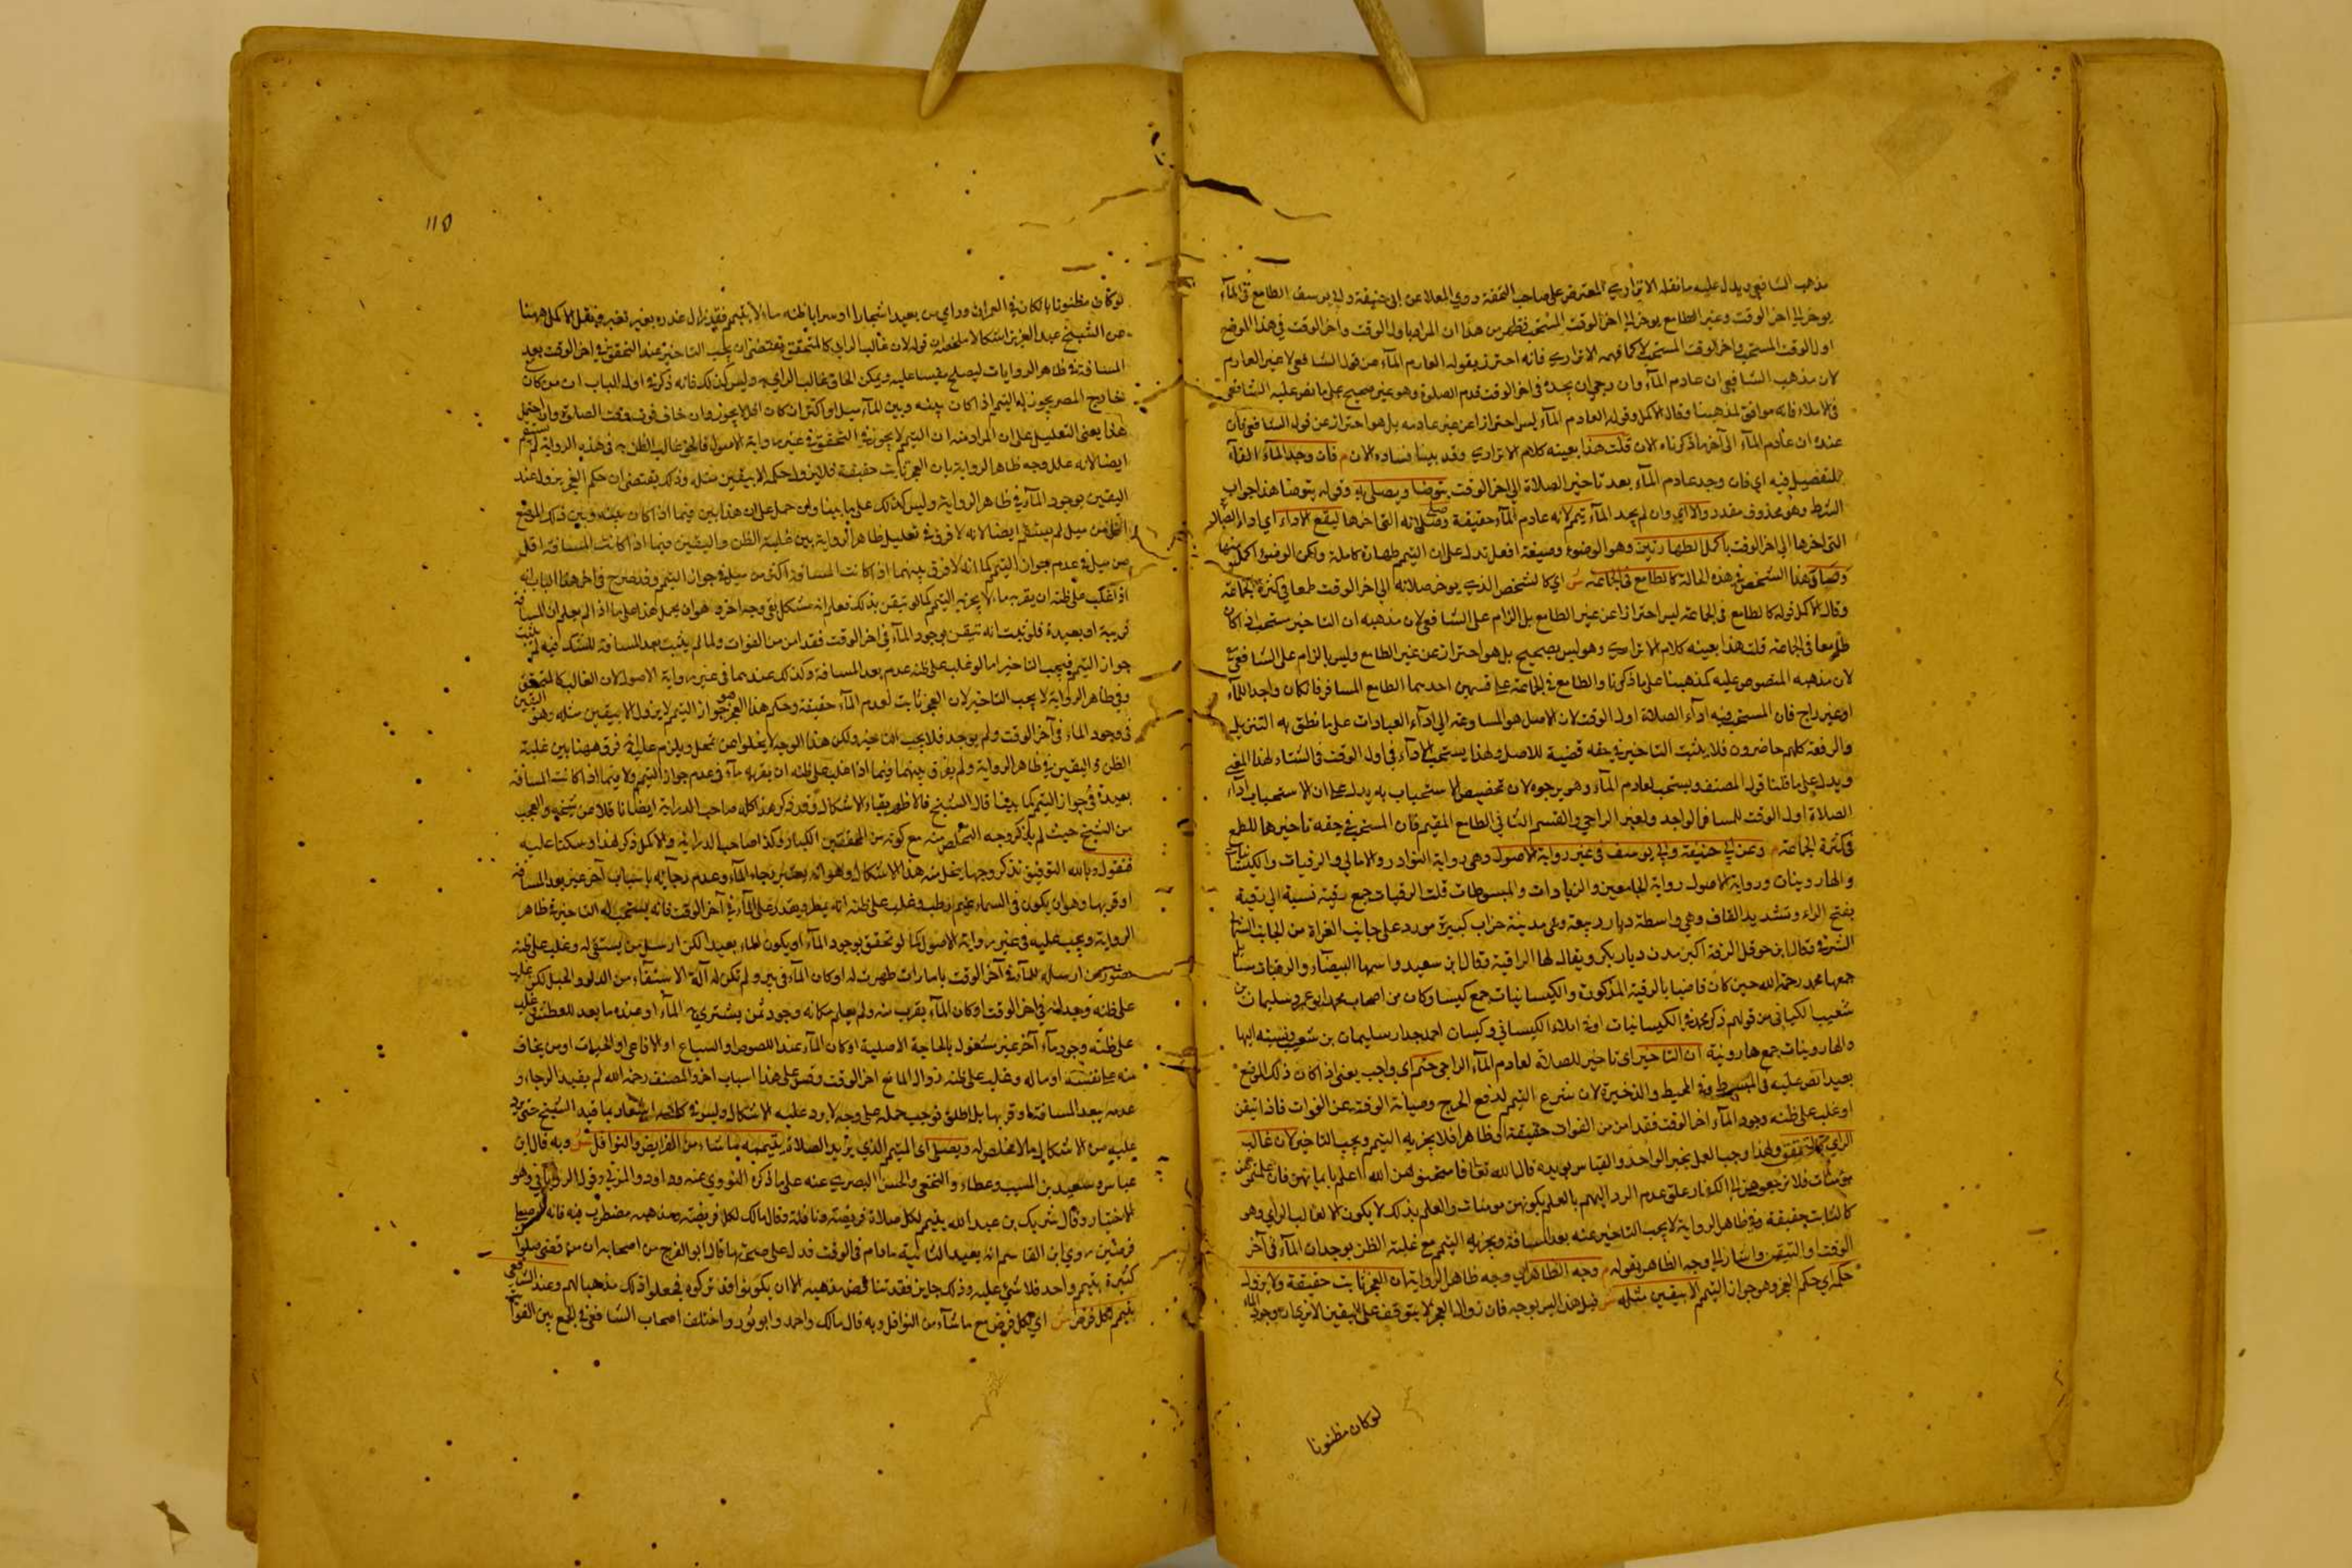 مذهب الشافعي ويدل عليه ما نقله الاترازي المعترض على صاحب التحفة وروي المعلا عن ابي حنيفة وابي يوسف الطامع في المآء
يوخر الى اخر الوقت وغير الطامع يوخر الى اخر الوقت المستحب فظهر من هذا ان المراد باول الوقت واخر الوقت في هذا الموضع
اول الوقت المستحب واخر الوقت المستحب لا كما فهمه الاترازي فانه احترز بقوله العادم المآء عن قول الشافعي لا عن غير العادم
لان مذهب الشافعي ان عادم المآء وان رجي ان يجده في اخر الوقت قدم الصلوة وهو غير صحيح على ما نص عليه الشافعي
في الاملاء فانه موافق لمذهبنا وقال الاكمل وقوله العادم المآء ليس احترازا عن غير عادمه بل هو احتراز عن قول الشافعي فان
عنده ان عادم المآء الى آخر ما ذكرناه الان قلت هذا بعينه كلام الاترازي وقد بينا فساده الان م فان وجد المآء الفآء
للتفصيل فيه اي فان وجد عادم المآء بعد تاخير الصلاة الى اخر الوقت يتوضا ويصلي به وقوله يتوضا هذا جواب
الشرط وهو محذوف مقدر والا اي وان لم يجد المآء تيمم لانه عادم المآء حقيقة وصلى صلاته التي اخرها ليقع الاداء اي اداء الصلاة
التي اخرها الى اخر الوقت باكمل الطهارتين وهو الوضوء وصيغة افعل تدل على ان التيمم طهارة كاملة ولكن الوضوء اكمل منها
وصار هذا الشخص في هذه الحالة كالطامع في الجماعة ش اي كالشخص الذي يوخر صلاته الى اخر الوقت طمعا في كثرة الجماعة
وقال الاكمل قوله كالطامع في الجماعة ليس احترازا عن غير الطامع بل الزام على الشافعي لان مذهبه ان التاخير مستحب اذا كان
طامعا في الجماعة قلت هذا بعينه كلام الاترازي وهو ليس بصحيح بل هو احتراز عن غير الطامع وليس بالزام على الشافعي
لان مذهبه المنصوص عليه كمذهبنا على ما ذكرنا والطامع في الجماعة على قسمين احدهما الطامع المسافر فان كان واجد المآء
او غير راج فان المستحب فيه ادآء الصلاة اول الوقت لان الاصل هو المسارعة الى ادآء العبادات على ما نطق به التنزيل
والرفعة كلهم حاضرون فلا يثبت التاخير في حقه قضية للاصل ولهذا يستحب الادآء في اول الوقت في الشتاء لهذا المعنى
ويدل على ما قلنا قول المصنف ويستحب لعادم المآء وهو يرجوه لان تخصيص الاستحباب به يدل على ان الاستحباب ادآء
الصلاة اول الوقت للمسافر الواجد ولغير الراجي والقسم الثاني الطامع المقيم فان المستحب في حقه تاخيرها للطمع
في كثرة الجماعة م وعن ابي حنيفة وابي يوسف في غير رواية الاصول وهي رواية النوادر والامالي والرقيات والكيسانيات
والهارونيات ورواية الاصول رواية الجامعين والزيادات والمبسوطات قلت الرقيات جمع رقية نسبة الى رقية
بفتح الراء وتشديد القاف وهي واسطة ديار ربيعة وهي مدينة خراب كبيرة مورد على جانب الفرات من الجانب الشمالي
الشرقي وقال ابن حوقل الرقة اكبر مدن ديار بكر ويقال لها الرافقة وقال ابن سعيد واسمها البيضآء والرقيات مسائل
جمعها محمد رحمة الله حين كان قاضيا بالرقية المذكورة والكيسانيات جمع كيسا وكان من اصحاب محمد ابو عمرو سليمان بن
شعيب الكيساني من قولهم ذكر محمد في الكيسانيات او في املاء الكيساني وكيسان احمد جدار سليمان بن شعيب ونسبته اليها
والهارونيات جمع هارونية ان التاخير اي تاخير للصلاة لعادم المآء الراجي حتم اي واجب يعني اذا كان ذلك الموضع
بعيدا نص عليه في المبسوط وفي المحيط والذخيرة لان شرع التيمم لدفع الحرج وصيانة الوقت عن الفوات فاذا تيقن
او غلب على ظنه وجود المآء اخر الوقت فقد امن من الفوات حقيقة او ظاهرا فلا يجزيه التيمم ويجب التاخير لان غالب
الراي كالمتحقق ولهذا وجب العمل بخبر الواحد والقياس يويده قال الله تعالى فامتحنوهن الله اعلم بايمانهن فان علمتموهن
مؤمنات فلا ترجعوهن الى الكفار علق عدم الرد اليهم بالعلم بكونهن مومنات والعلم بذلك لا يكون الا لغالب الراي وهو
كالثابت حقيقة وفي ظاهر الرواية لا يجب التاخير عنه بعد المسافة ويجزيه التيمم مع غلبة الظن بوجدان المآء في آخر
الوقت او التيقن واشار الى وجه الظاهر بقوله م وجه الظاهر اي وجه ظاهر الرواية ان العجز ثابت حقيقة ولا يزول
حكمه اي حكم العجز وهو جواز التيمم الا بيقين مثله ش قيل هذا ليس بوجيه فان زوال العجز لا يتوقف على اليقين الا ترى ان وجود الماء
لو كان مظنونا
١١٥
لو كان مظنونا بالكان في العمران وراي من بعيد اشجارا او سرابا لظنه ماء لا يتيمم فقد زال عنده بغير يقين ونقل الاكمل ههنا
عن الشيخ عبد العزيز اشكالا ملخصه ان قوله لان غالب الراي كالمتحقق يقتضي ان يجب التاخير عند التحقق في اخر الوقت بعد
المسافة في ظاهر الروايات ليصلح مقيسا عليه ويمكن الحاق غالب الراي به وليس كذلك فانه ذكر في اول الباب ان من كان
خارج المصر يجوز له التيمم اذا كان بينه وبين المآء ميل او اكثر ان كان اقل لا يجوز وان خاف فوت وقت الصلوة وان احتمل
هذا يعني التعليل على ان المراد منه ان التيمم لا يجوز في التحقق في غير رواية الاصول فالحق غالب الظن به في هذه الرواية لم يستقم
ايضا لانه علل وجه ظاهر الرواية بان العجز ثابت حقيقة فلا يزول حكمه الا بيقين مثله وذلك يقتضي ان حكم العجز يزول عند
اليقين بوجود المآء في ظاهر الرواية وليس كذلك على ما بينا ولئن حمل على ان هذا بين فيما اذا كان بينه وبين ذلك الموضع
اقل من ميل لم يستقم ايضا لانه لا فرق في تعليل ظاهر الرواية بين غلبة الظن واليقين فيما اذا كانت المسافة اقل
من ميل في عدم جواز التيمم كما انه لا فرق بينهما اذا كانت المسافة اكثر من ميل في جواز التيمم وقد صرح في اخر هذا الباب انه
اذا غلب على ظنه ان بقربه ماء لا يجزيه التيمم كما لو تيقن بذلك فعلم انه مشكل بقي وجه اخر وهو ان يحمل هذا على ما اذا لم يعلم ان المسافة
قريبة او بعيدة فلو ثبت انه تيقن بوجود المآء في اخر الوقت فقد امن من الفوات ولما لم يثبت بعد المسافة للشك فيه لم يثبت
جواز التيمم فيجب التاخير اما لو غلب على ظنه عدم بعد المسافة وكذلك عندهما في غير رواية الاصول لان الغالب كالمتحقق
وفي ظاهر الرواية لا يجب التاخير لان العجز ثابت لعدم المآء حقيقة وحكم هذا العجز هو جواز التيمم لا يزول الا بيقين مثله وهو اليقين
في وجود الماء في آخر الوقت ولم يوجد فلا يجب التاخير ولكن هذا الوجه لا يخلوا من تمحل ويلزم عليه فرق ههنا بين غلبة
الظن واليقين في ظاهر الرواية ولم يفرق بينهما فيما اذا غلب على ظنه ان بقربه مآء في عدم جواز التيمم ولا فيما اذا كانت المسافة
بعيدة في جواز التيمم كما بينا قال الشيخ فالاظهر بقاء الاشكال وقد ذكر هذا كله صاحب الدراية ايضا ناقلا من شيخه والعجب
من الشيخ حيث لم يذكر وجه التخلص منه مع كونه من المحققين الكبار وكذا صاحب الدراية والاكمل ذكر هذا وسكتا عليه
فنقول وبالله التوفيق نذكر وجها ينحل منه هذا الاشكال وهو انه يعتبر رجاء المآء وعدم رجآئه باسباب آخر غير بعد المسافة
او قربها وهو ان يكون في السماء غيم رطب وغلب على ظنه انه يمطر ويقدر على المآء في آخر الوقت فانه يستحب له التاخير في ظاهر
الرواية ويجب عليه في غير رواية الاصول كما لو تحقق بوجود المآء او يكون الماء بعيدا لكن ارسل من يستقى له وغلب على ظنه
حضور من ارسله للمآء في آخر الوقت بامارات ظهرت له او كان المآء في بئر ولم تكن له آلة الاستقآء من الدلو والحبل لكن غلب
على ظنه وجدانه في اخر الوقت او كان المآء بقرب منه ولم يعلم مكانه وجود ثمن يشتري به المآء او عنده ما يعد للعطش غلب
على ظنه وجود مآء آخر غير مشغول بالحاجة الاصلية او كان المآء عند اللصوص او السباع او الافاعي او الحيات او من يخاف
منه على نفسه او ماله وغلب على ظنه زوال المانع اخر الوقت وقس على هذا اسباب اخر والمصنف رحمه الله لم يقيد الرجاء و
عدمه ببعد المسافة او قربها بل اطلق فوجب حمله على وجه لا يرد عليه الاشكال وليس في كلامه اشعار بما قيد الشيخ حتى يرد
عليه من الاشكال ما لا مخلص له ويصلي اي المتيمم الذي يريد الصلاة بتيممه ما شاء من الفرايض والنوافل ش وبه قال ابن
عباس وسعيد بن المسيب وعطاء والنخعي والحسن البصري عنه على ما ذكره النووي عنه وداود والمزني وقول الروياني وهو
الاختيار وقال شريك بن عبد الله يتيمم لكل صلاة فريضة ونافلة وقال مالك لكل فريضة ومذهبه مضطرب فيه فانه لو صلى
فرضين روي ابن القاسم انه يعيد الثانية ما دام في الوقت فدل على صحتها قال ابو الفرج من اصحابه ان من قضى صلوات
كثيرة بتيمم واحد فلا شيء عليه وذلك جايز فقد تناقض مذهبه الا ان يكونوا قد تركوه فجعلوا ذلك مذهبا لهم وعند الشافعي
يتيمم لكل فرض ش اي لكل فرض مع ما شاء من النوافل وبه قال مالك واحمد وابو ثور واختلف اصحاب الشافعي في الجمع بين الفوائت